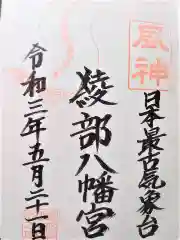 風神
日本最古気象台
綾部八幡宮
令和三年五月二十一日